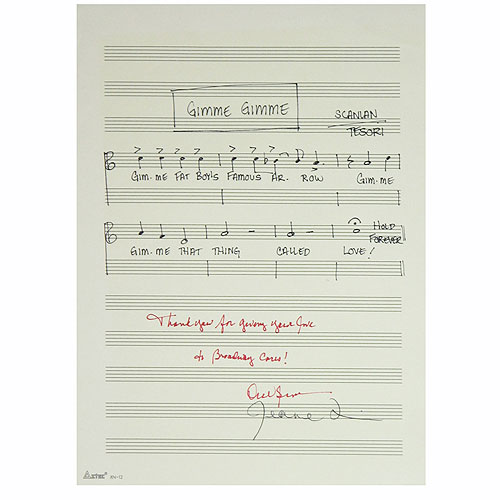 GIMME GIMME
SCANLAN
TESORI
GIM-ME FAT BOY'S FAMOUS AR-ROW GIM-ME
HOLD
FOREVER
GIM-ME THAT THING CALLED LOVE!
Thank you for giving your love
to Broadway Cares!
Jeane
AZTEC® KN-12